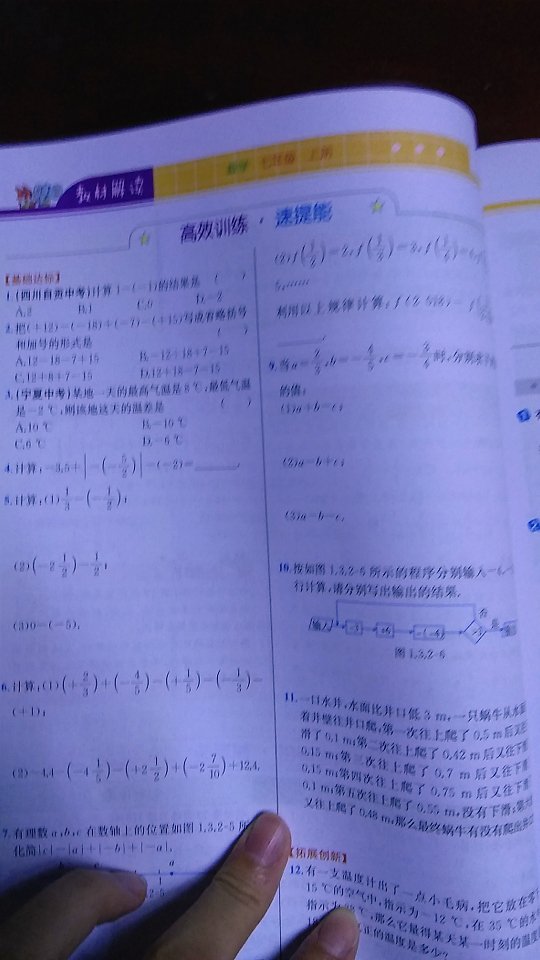 教材解读
数学 七年级 上册
高效训练·速提能
【基础达标】
1.(四川自贡中考)计算1-(-1)的结果是 ( )
A.2 B.1 C.0 D.-2
2.把(+12)-(-18)+(-7)-(+15)写成省略括号
和加号的形式是 ( )
A.12-18-7+15 B.-12+18+7-15
C.12+8+7-15 D.12+18-7-15
3.(宁夏中考)某地一天的最高气温是8 ℃,最低气温
是-2 ℃,则该地这天的温差是 ( )
A.10 ℃ B.-10 ℃
C.6 ℃ D.-6 ℃
4.计算:-3.5+|-(-5/2)|-(-2)=
5.计算:(1)1/3-(-1/2);
(2)(-2 1/2)-1/2;
(3)0-(-5).
6.计算:(1)(+2/3)+(-4/5)-(+1/5)-(-1/3)-
(+1);
(2)-4.4-(-4 1/5)-(+2 1/2)+(-2 7/10)+12.4.
7.有理数a,b,c在数轴上的位置如图1.3.2-5所
化简|c|-|a|+|-b|+|-a|.
a
利用以上规律计算:
9.当
时,分别求
的值:
(1)a+b-c;
(2)a-b+c;
(3)a-b-c.
10.按如图1.3.2-6所示的程序分别输入
行计算,请分别写出输出的结果.
否
输入 -3 +6 -(-4) 是
图1.3.2-6
11.一口水井,水面比井口低3 m,一只蜗牛从水面
着井壁往井口爬,第一次往上爬了0.5 m后又往
滑了0.1 m;第二次往上爬了0.42 m后又往下
0.15 m;第三次往上爬了0.7 m后又往下
0.15 m;第四次往上爬了0.75 m后又往下
0.1 m;第五次往上爬了0.55 m,没有下滑;第六
又往上爬了0.48 m,那么最终蜗牛有没有爬出井
【拓展创新】
12.有一支温度计出了一点小毛病,把它放在
15 ℃的空气中,指示为-12 ℃,在35 ℃的水
指示为 ℃,那么它量得某天某一时刻的温度
正的温度是多少?